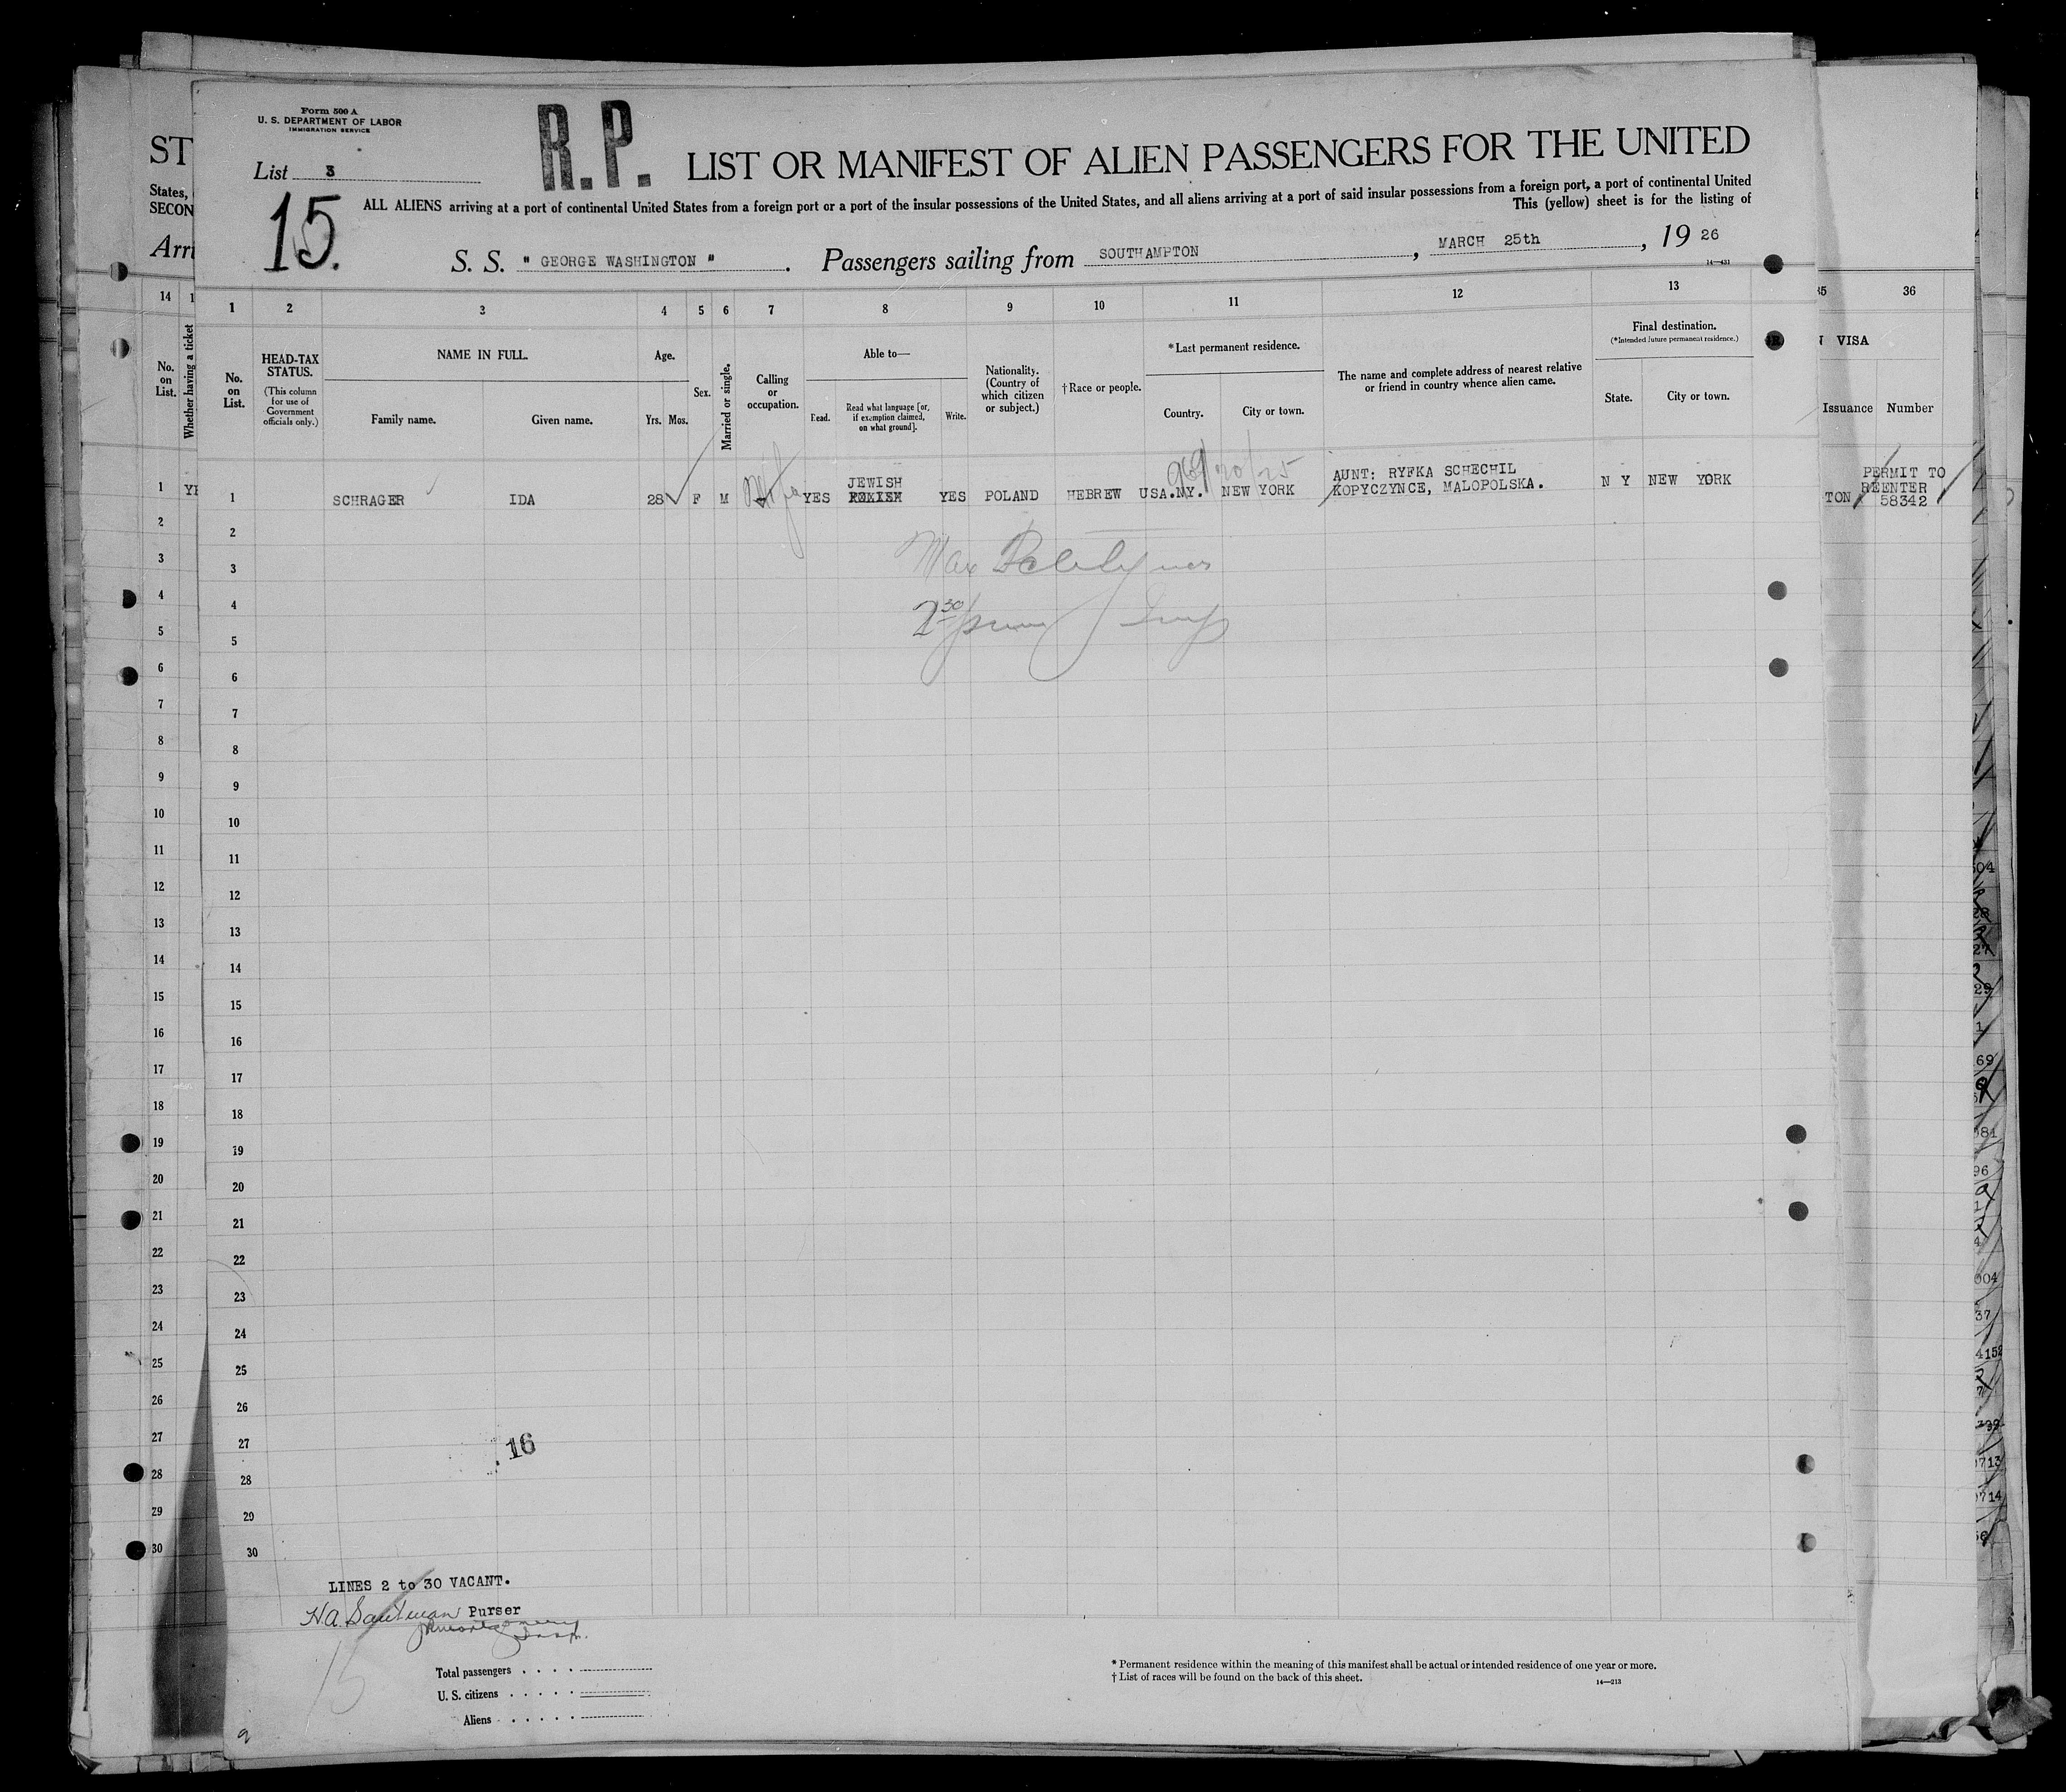 Form 500 A
U. S. DEPARTMENT OF LABOR
IMMIGRATION SERVICE
List 3
15.
R.P.
LIST OR MANIFEST OF ALIEN PASSENGERS FOR THE UNITED
ALL ALIENS arriving at a port of continental United States from a foreign port or a port of the insular possessions of the United States, and all aliens arriving at a port of said insular possessions from a foreign port, a port of continental United
This (yellow) sheet is for the listing of
S. S. " GEORGE WASHINGTON ". Passengers sailing from SOUTHAMPTON, MARCH 25th, 19 26
14—431
1 2 3 4 5 6 7 8 9 10 11 12 13
No. on List.
HEAD-TAX STATUS.
(This column for use of Government officials only.)
NAME IN FULL.
Family name. Given name.
Age.
Yrs. Mos.
Sex.
Married or single.
Calling or occupation.
Able to—
Read. Read what language [or, if exemption claimed, on what ground]. Write.
Nationality. (Country of which citizen or subject.)
†Race or people.
*Last permanent residence.
Country. City or town.
The name and complete address of nearest relative or friend in country whence alien came.
Final destination.
(*Intended future permanent residence.)
State. City or town.
1 SCHRAGER IDA 28 F M YES JEWISH POLISH YES POLAND HEBREW USA.NY. NEW YORK AUNT: RYFKA SCHECHIL KOPYCZYNCE, MALOPOLSKA. N Y NEW YORK
2
3
Max
4
2 30
5
6
7
8
9
10
11
12
13
14
15
16
17
18
19
20
21
22
23
24
25
26
27
16
28
29
30
LINES 2 to 30 VACANT.
Purser
15
Total passengers
U. S. citizens
Aliens
* Permanent residence within the meaning of this manifest shall be actual or intended residence of one year or more.
† List of races will be found on the back of this sheet.
14—213
ST
States,
SECON
Arri
14
No. on List.
Whether having a ticket
1
2
3
4
5
6
7
8
9
10
11
12
13
14
15
16
17
18
19
20
21
22
23
24
25
26
27
28
29
30
35 36
N VISA
Issuance Number
TON
PERMIT TO
REENTER
58342